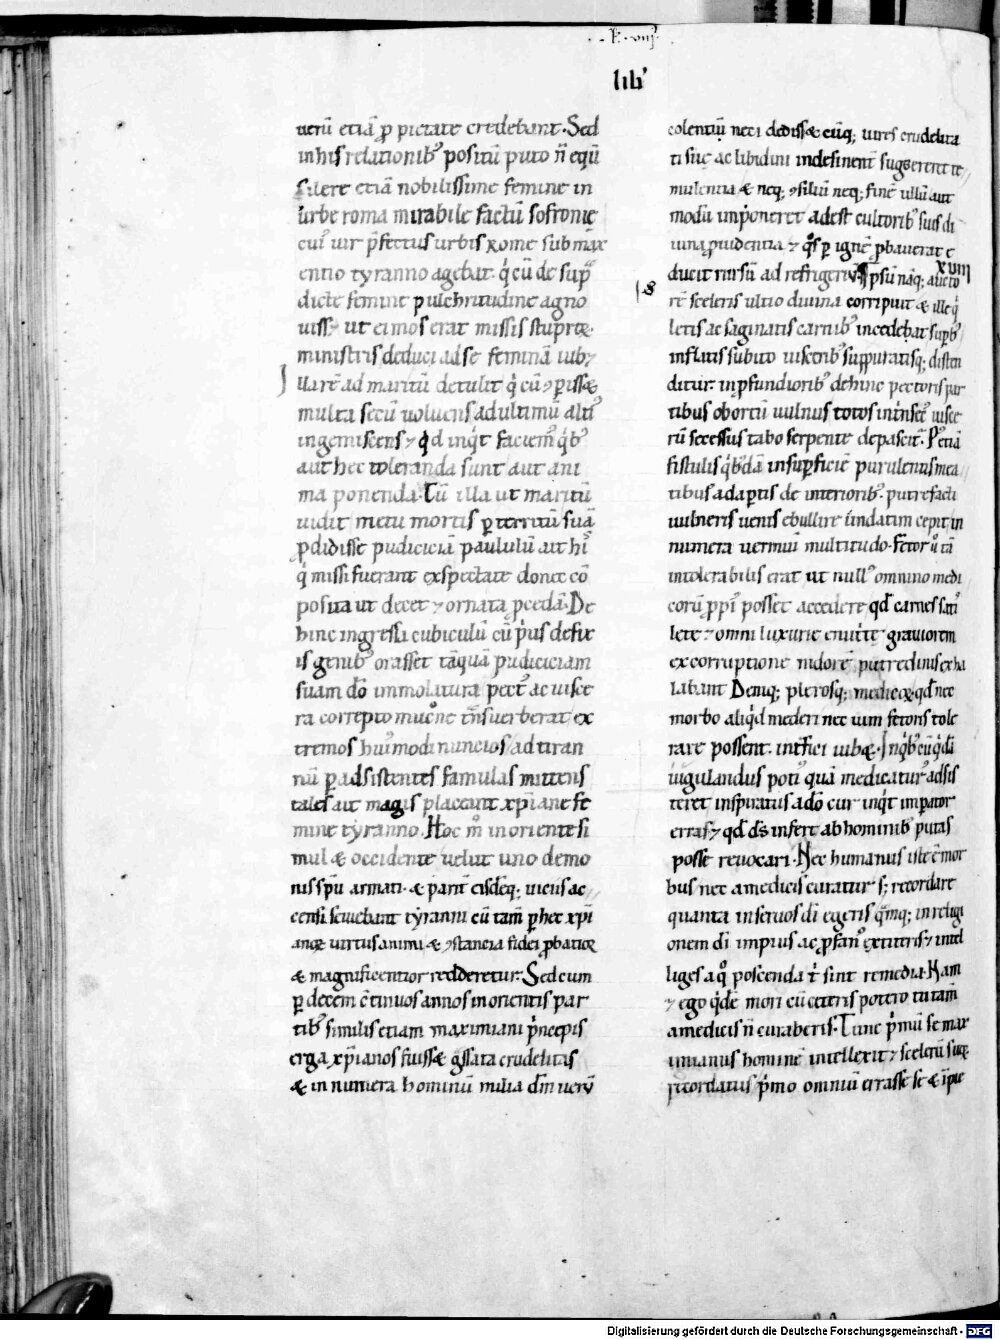 lib'
uerū etiā p pietate credebant. Sed
in his relationib; positū puto n̄ equū
silere etiā nobilissime femine in
urbe roma mirabile factū sofronie
cui' uir p̄fectus urbis rome sub max
entio tyranno agebat. q̇ cū de sup̄
dicte femine pulchritudine agno
uiss& ut ei mos erat missis stupror̄
ministris deduci ad se feminā iub&
Illa rē ad maritū detulit q̇ cū ꝯpiss&
multa secū uoluens ad ultimū alti'
ingemiscens ⁊ qd inq̇t faciem' q̇b'
aut hec toleranda sunt aut ani
ma ponenda. Tū illa ut maritū
uidit metu mortis pterritū suā
pdidisse pudiciciā paululū ait hi'
q̇ missi fuerant exspectate donec cō
posita ut decet ⁊ ornata pcedā. De
hinc ingressa cubiculū cū ṗus defix
is genib' orasset tāquā pudiciciam
suam dō immolatura pect' ac uisce
ra correpto mucrone tn̄suerberat ex
tremos hui'modi nuncios ad tiran
nū p adsistentes famulas mittens
tales aut magis placeant xp̄iane fe
mine tyranno. Hoc m̊ in oriente si
mul & occidente uelut uno demo
nis sp̄u armati. & parit̄ eisdēq; uiciis ac
censi seuiebant tyranni cū tam̄ p hec xp̄i
anor̄ uirtus animi & ꝯstancia fidei pbatior
& magnificentior redderetur. Sed cum
p decem ctinuos annos in orientis par
tib; similis etiam maximiani ṗncipis
erga xp̄ianos fuiss& g̊ssata crudelitas
& innumera hominū milia dm̄ uerū
colentiū neci dediss& cūq; uires crudelita
ti sue ac libidini indesinent̄ suggereret te
mulentia & neq; ꝯsiliū neq; finē ullū aut
modū imponeret adest cultorib; suis di
uina prudentia ⁊ q̊s p ignē pbauerat e
ducit rursū ad refrigeriū. Ipsū naq; aucto
XVIII
rē sceleris ultio diuina corripuit & ille q̇
letis ac saginatis carnib; incedebat supb'
inflatis subito uiscerib; suppuratisq; disten
ditur. in pfundiorib; dehinc pectoris par
tibus obortū uulnus totos intrinsec' uisce
rū secessus tabo serpente depascit̄. P' etiā
fistulis q̇b'dā in supficiē purulentis mea
tibus adaptis de interiorib; putrefacti
uulneris uenis ebullire undatim cepit in
numera uermiū multitudo. Fetor u̇ tā
intolerabilis erat ut null' omnino medi
corū ppi' posset accedere qd carnes sati
lete ⁊ omni luxurie enutrite grauiorem
ex corruptione nidorē putredinis exha
labant Deniq; plerosq; medicor̄ qd nec
morbo aliq̇d mederi nec uim fetoris tole
rare possent. int̄fici iub&. In q̇b' cū q̇dā
iugulandus poti' quā medicatur' adsis
teret inspiratus a dō cur inq̇t impator
erras ⁊ qd ds̄ infert ab hominib; putas
posse reuocari. Nec humanus iste ē mor
bus nec a medicis curatur s; recordare
quanta in seruos di egeris q̄mq; in religi
onem di impius ac pfan' extiteris ⁊ intel
liges a q̊ poscenda t̄ sint remedia. Nam
⁊ ego q̇dē mori cū ceteris potero tu tam̄
a medicis n̄ curaberis. Tunc ṗmū se max
imianus hominē intellexit ⁊ scelerū suor̄
recordatus ṗmo omniū errasse se & ip̄ie
Digitalisierung gefördert durch die Deutsche Forschungsgemeinschaft - DFG